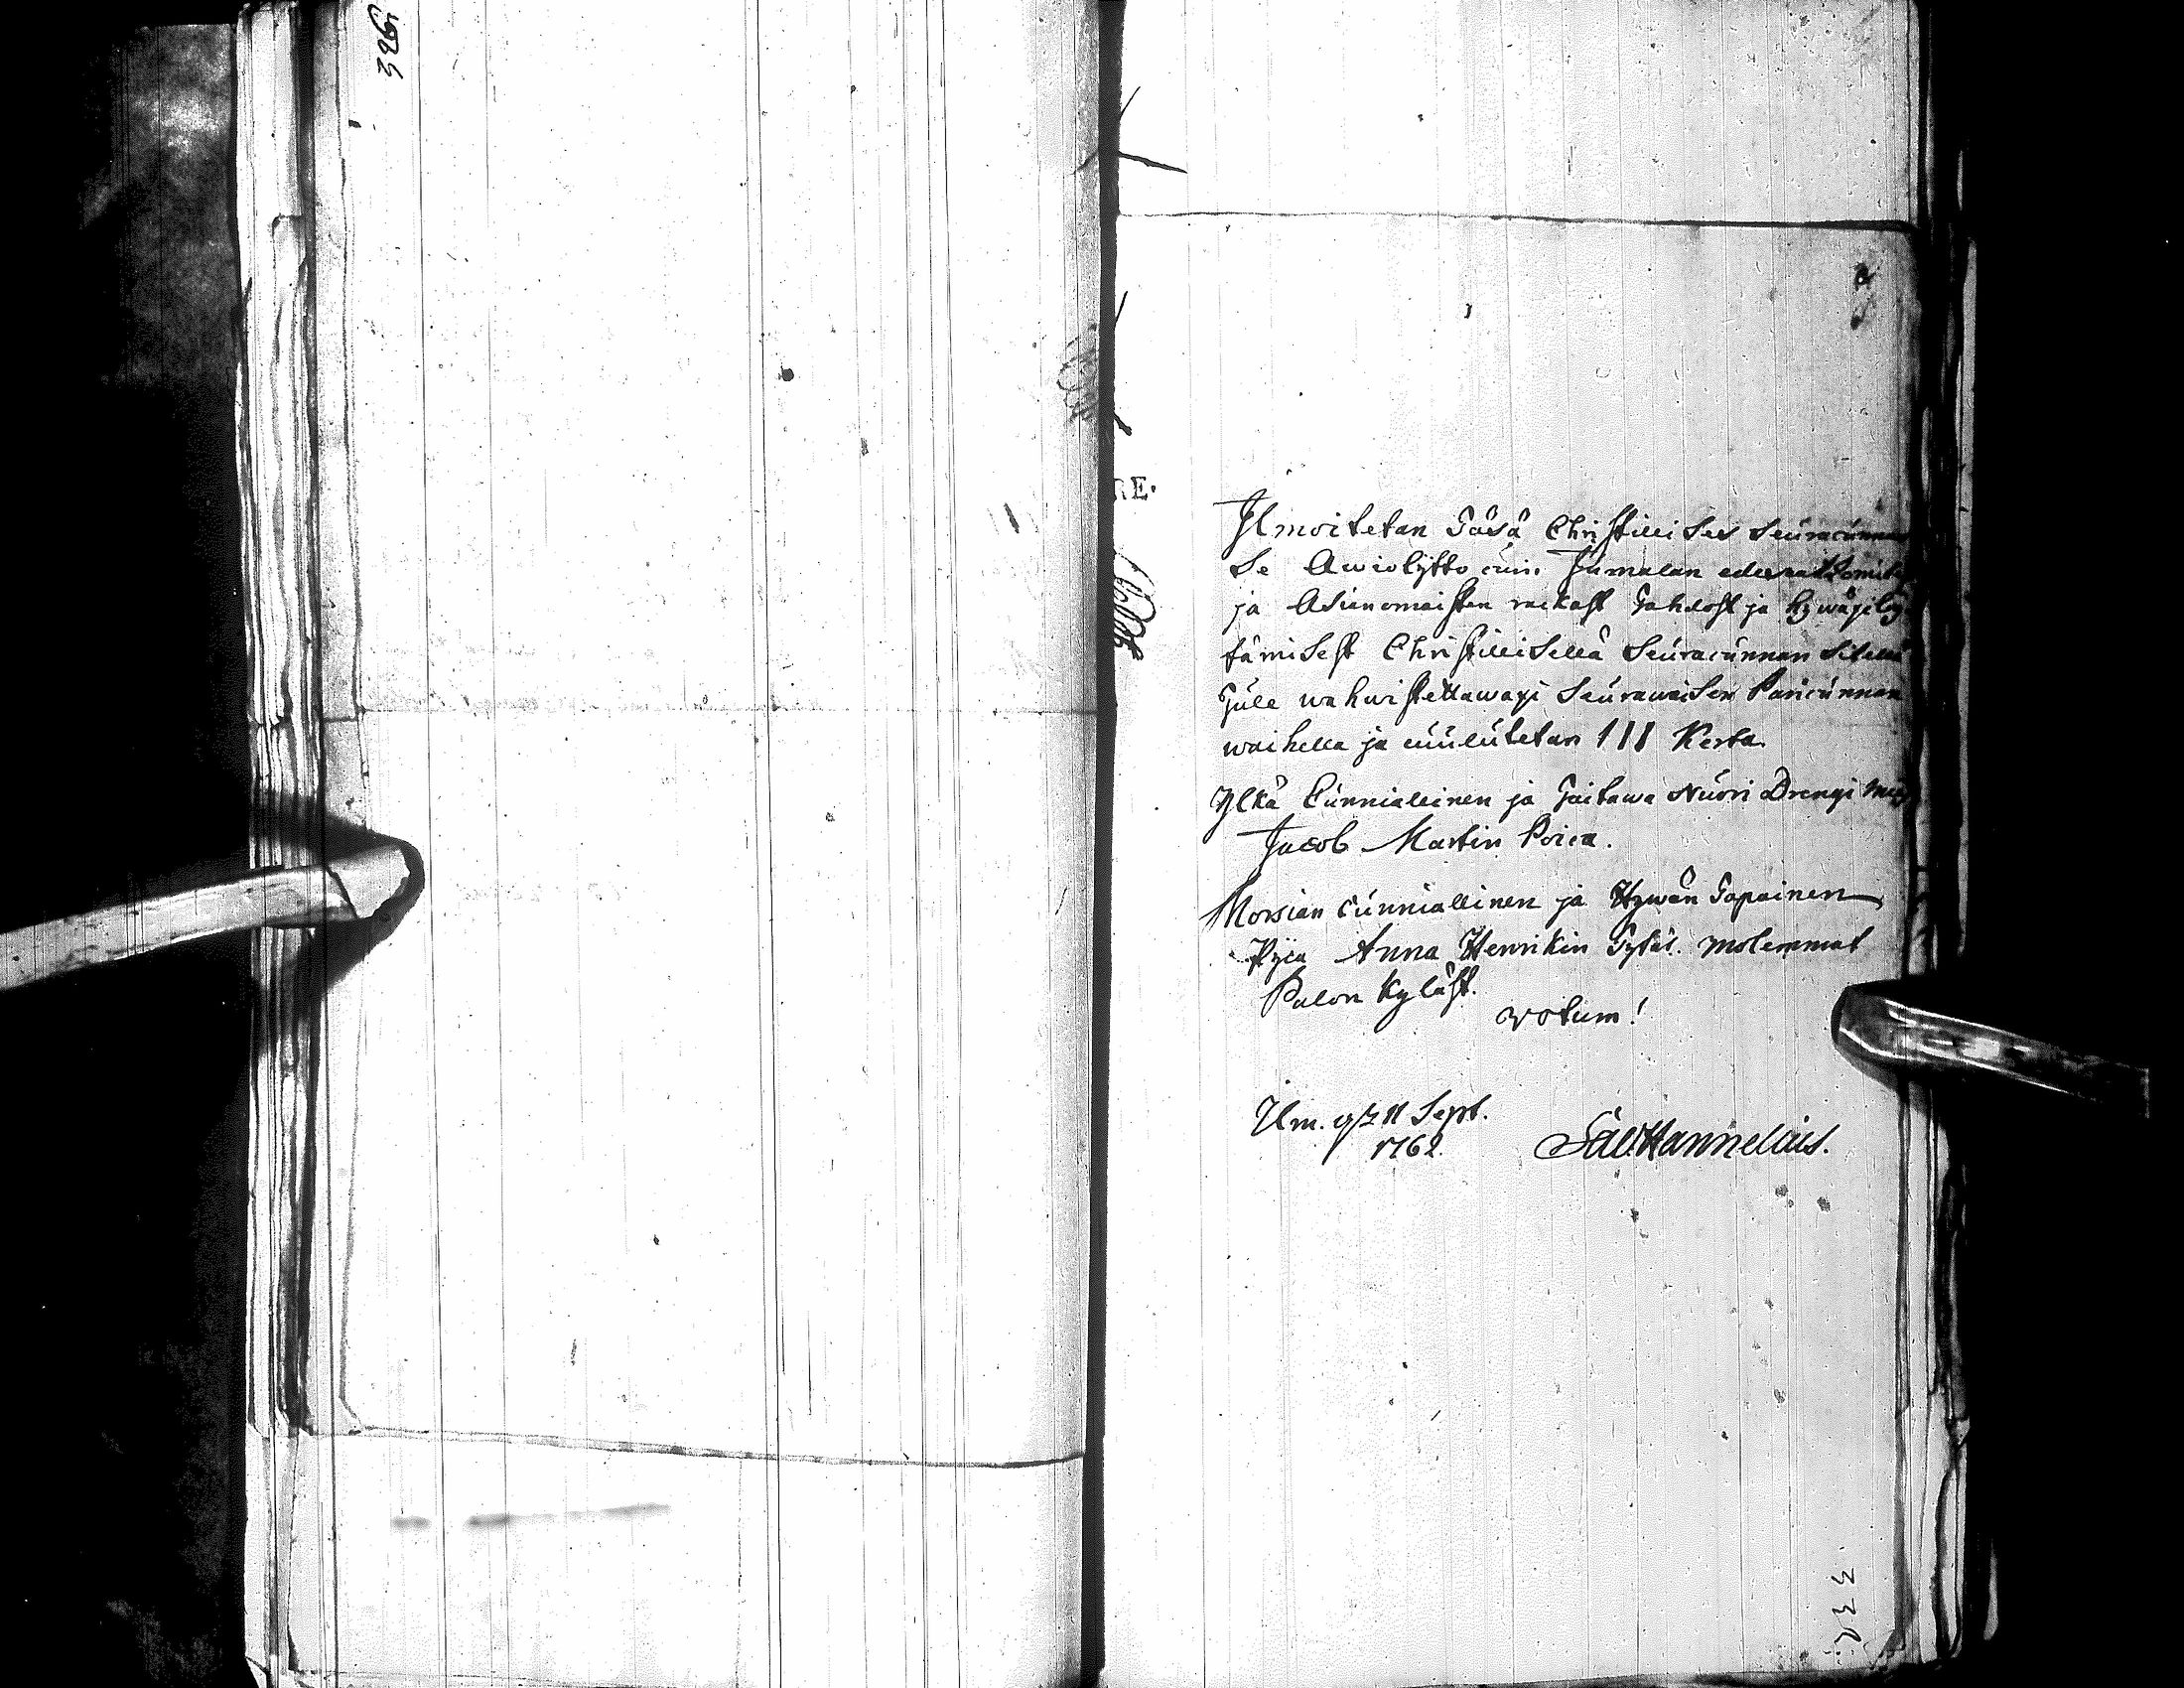 326
RE.
Ilmoitetan Täsä Christillises Seuracunnas
Se Awiolijtto cuin Jumalan edes
ja Asianomaisten rackast Tahdost ja hywäxilöy-
tämisest Christillisellä Seuracunnan Sitellä
Tule wahwistettawaxi Seurawaisen Pariscunnan
waihella ja cuulutetan III Kerta.
Ylkä Cunniallinen ja Toitawa Nuori Drengi Mies
Jacob Martin Poica.
Morsian Cunniallinen ja Hywän Tapainen
Pijca Anna Henrikin Tytär. molemmat
Palon Kyläst.
votum!
Ilm. d. 11 Sept.
1762.